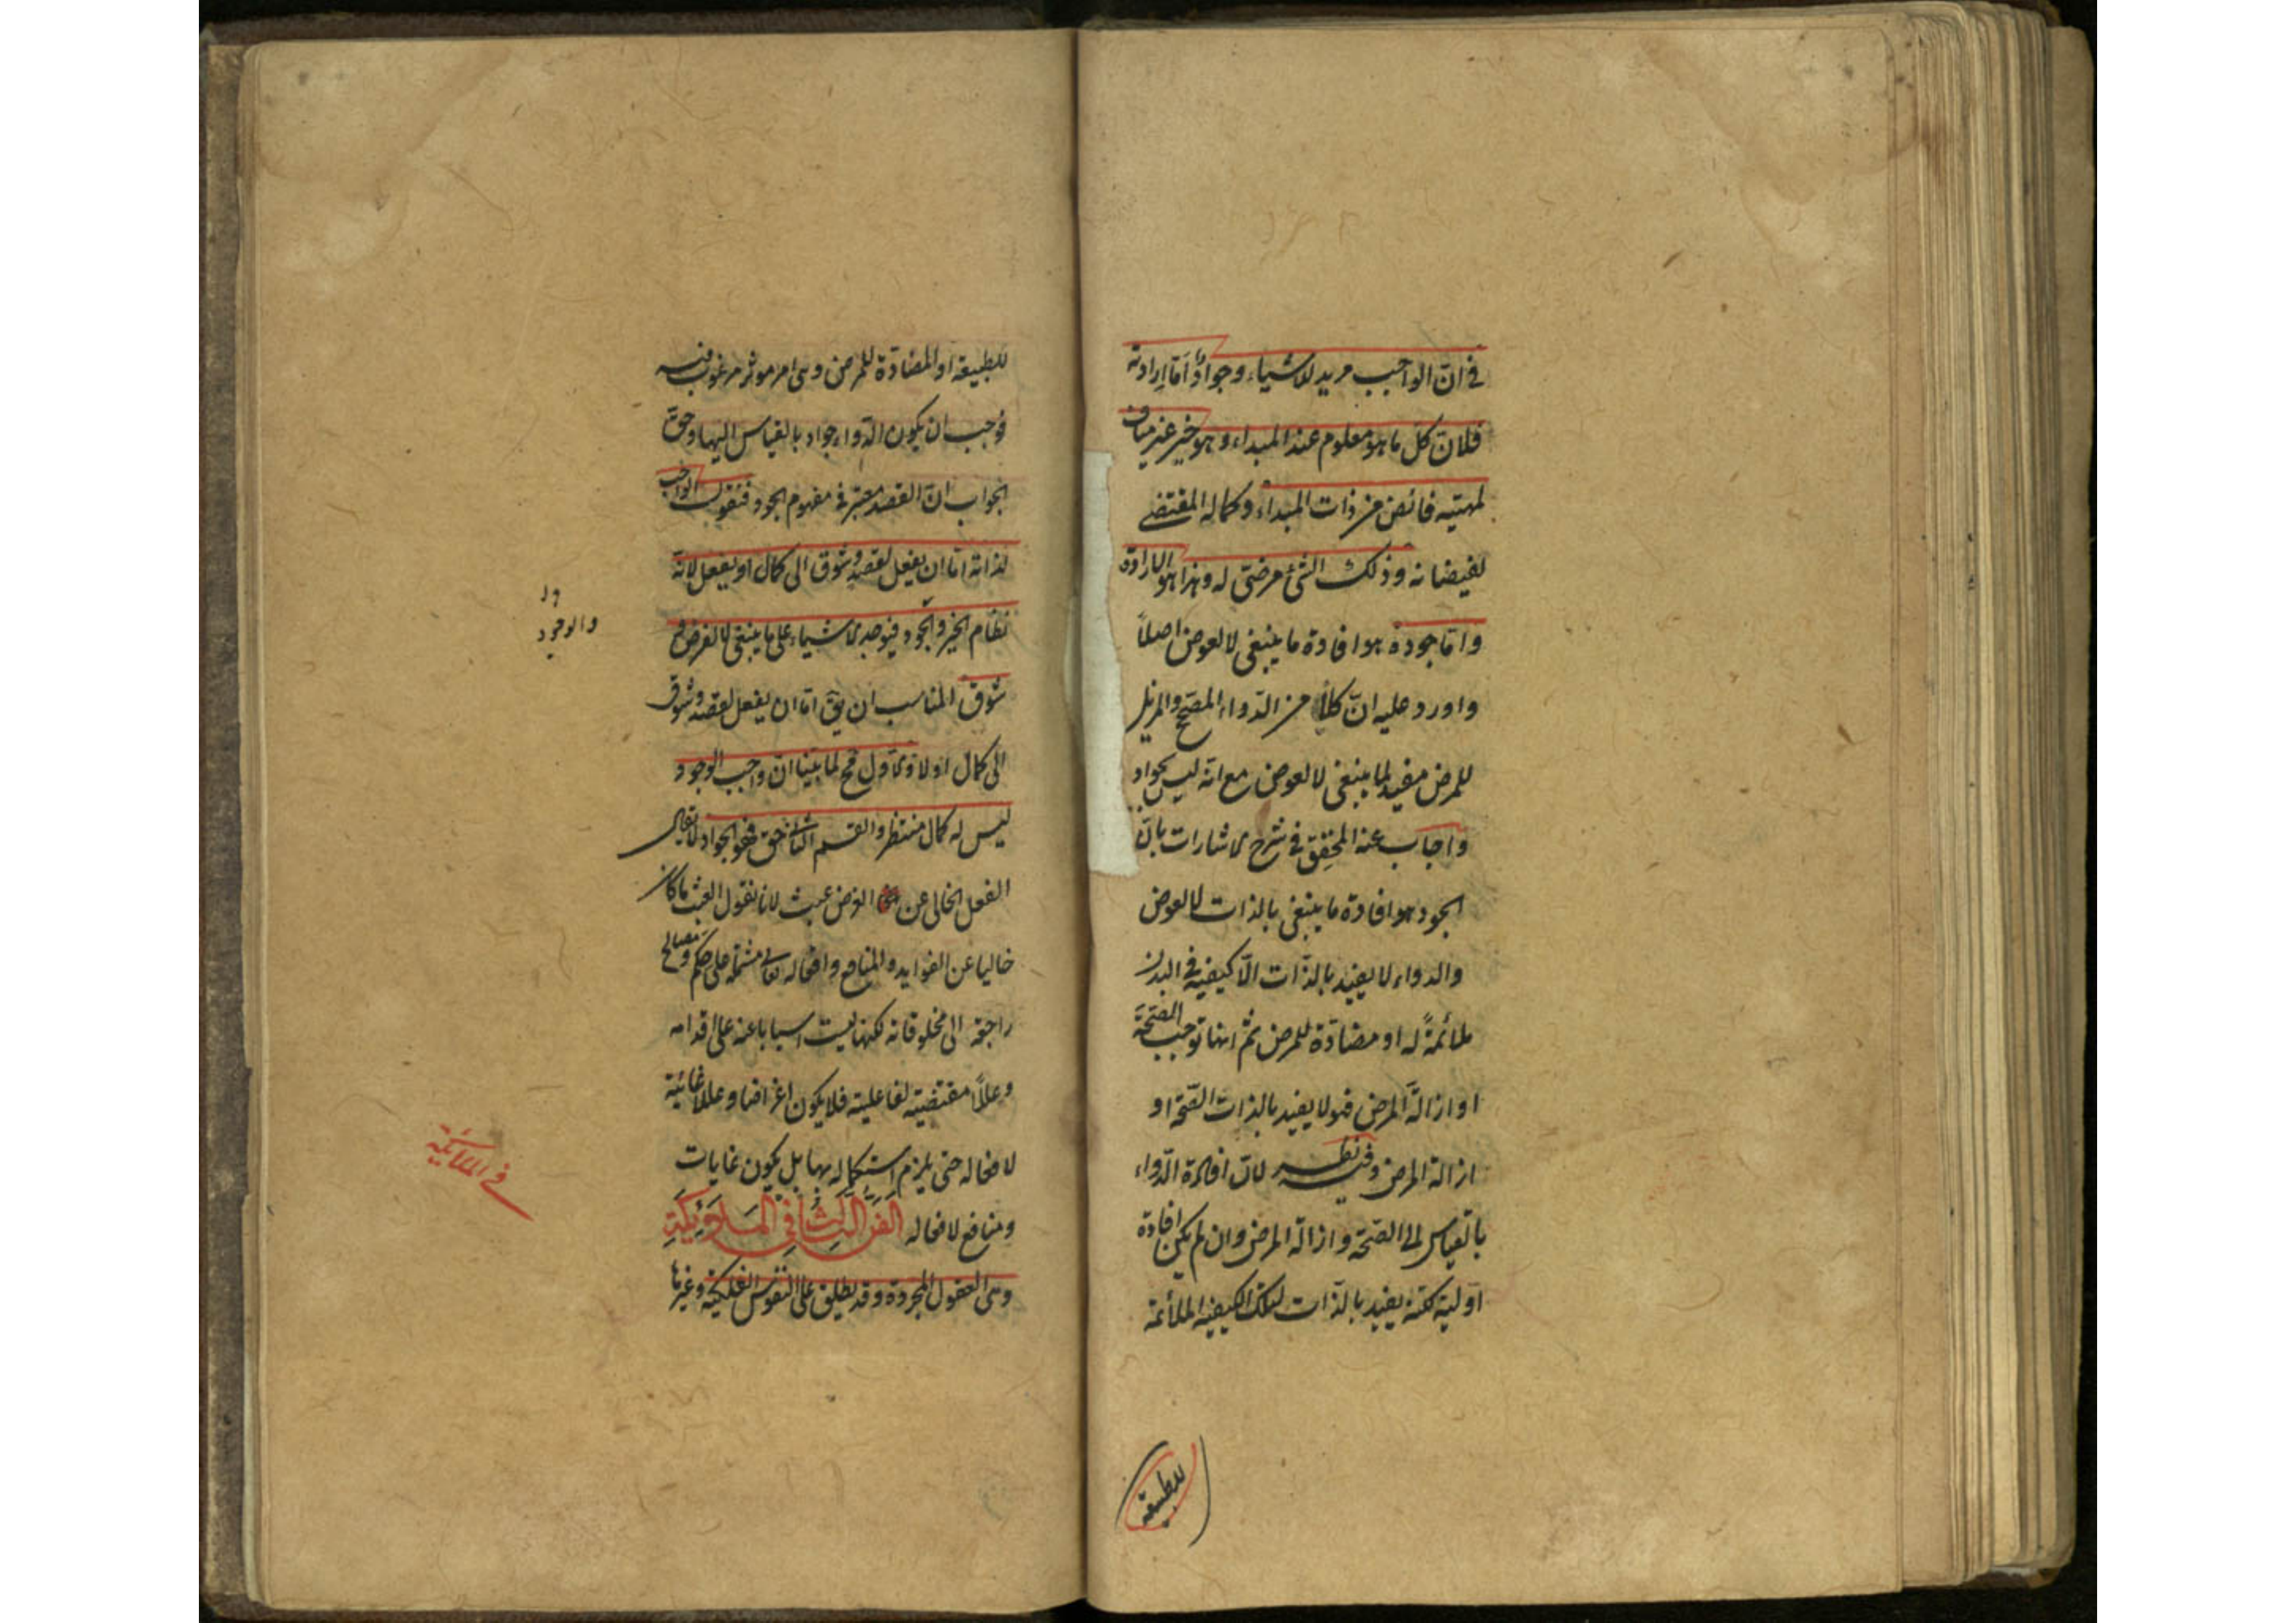 في ان الواجب مريد للاشياء وجوادٌ أمّا إرادته
فلانّ كلّ ما هو معلوم عند المبداء وهو خير غير مناف
لمهيّته فائض من ذات المبداء وكماله المقتضى
لفيضانه وذلك الشئ مرضىّ له وهذا هو الارادة
وامّا جوده هو افادة ما ينبغى لا لعوض اصلاً
واورد عليه انّ كلاًّ من الدّواء المصحّ والمزيل
للمرض مفيد لما ينبغى لا لعوض مع انّه ليس بجواد
واجاب عنه المحقّق فى شرح الاشارات بانّ
الجود هو افادة ما ينبغى بالذات لا لعوض
والدواء لا يفيد بالذّات الّا كيفيه فى البدن
ملائمةً له او مضادّة للمرض ثم انها توجب الصّحّة
او ازالة المرض فهو لا يفيد بالذات الصّحّة او
ازالة المرض وفيه نظر لانّ افادة الدّواء
بالقياس الى الصّحّة وازالة المرض وان لم يكن افادة
اوّلية لكنّه يفيد بالذّات لتلك الكيفيه الملائمة
للطبيعة
للطبيعة او المضادّة للمرض وهى امر موثر مرغوب فيه
فوجب ان يكون الدّواء جواد بالقياس اليها وحقّ
الجواب انّ القصد معتبر فى مفهوم الجود فنقول الواجب
لذاته امّا ان يفعل لقصد وشوق الى كمال او يفعل لانّه
نظام الخير والجود فيوجد الاشياء على ما ينبغى لا لغرض و
شوق المناسب ان يقّ امّا ان يفعل لقصد وشوق
الى كمال او لا والاوّل مح لما بيّنا انّ واجب الوجود
ليس له كمال منتظر والقسم الثانى حقّ فهو الجواد لا يقال
الفعل الخالى عن الغرض عبث لانا نقول العبث ما كان
خاليا عن الفوايد والمنافع وافعاله تعالى مشتملة على حكم ومصالح
راجعة الى مخلوقاته لكنها ليست اسبابا باعثة على اقدامه
وعللاً مقتضيّة لفاعليته فلا يكون اغراضا وعللا غائيّة
لافعاله حتى يلزم استكماله بها بل يكون غايات
ومنافع لافعاله الفَنُّ الثّالِثُ فِي المَلائِكَةِ
وهى العقول المجرّدة وقد يطلق على النفوس الفلكيّة وغيرها
والوجود
فى الملائكة